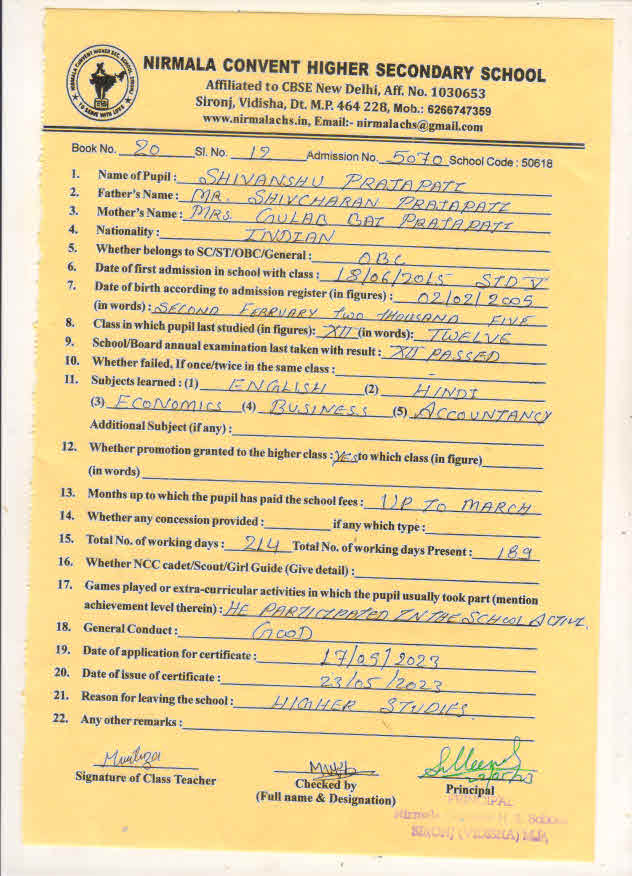 NIRMALA CONVENT HIGHER SECONDARY SCHOOL
Affiliated to CBSE New Delhi, Aff. No. 1030653
Sironj, Vidisha, Dt. M.P. 464 228, Mob.: 6266747359
www.nirmalachs.in, Email:- nirmalachs@gmail.com
NIRMALA CONVENT HIGHER SEC. SCHOOL
TO SERVE WITH LOVE
Book No. 20 Sl. No. 12 Admission No. 5070 School Code : 50618
1. Name of Pupil : SHIVANSHU PRAJAPATI
2. Father's Name : MR. SHIVCHARAN PRAJAPATI
3. Mother's Name : MRS GULAB BAI PRAJAPATI
4. Nationality : INDIAN
5. Whether belongs to SC/ST/OBC/General : OBC
6. Date of first admission in school with class : 18/06/2015 STD V
7. Date of birth according to admission register (in figures) : 02/02/2005
(in words) : SECOND FEBRUARY TWO THOUSAND FIVE
8. Class in which pupil last studied (in figures): XII (in words): TWELVE
9. School/Board annual examination last taken with result : XII PASSED
10. Whether failed, If once/twice in the same class : -
11. Subjects learned : (1) ENGLISH (2) HINDI
(3) ECONOMICS (4) BUSINESS (5) ACCOUNTANCY
Additional Subject (if any) :
12. Whether promotion granted to the higher class : Yes to which class (in figure)
(in words)
13. Months up to which the pupil has paid the school fees : UP TO MARCH
14. Whether any concession provided : if any which type :
15. Total No. of working days : 214 Total No. of working days Present : 189
16. Whether NCC cadet/Scout/Girl Guide (Give detail) :
17. Games played or extra-curricular activities in which the pupil usually took part (mention
achievement level therein) : HE PARTICIPATED IN THE SCHOOL ACTIVI.
18. General Conduct : GOOD
19. Date of application for certificate : 17/05/2023
20. Date of issue of certificate : 23/05/2023
21. Reason for leaving the school : HIGHER STUDIES.
22. Any other remarks :
Signature of Class Teacher
Checked by
(Full name & Designation)
Principal
PRINCIPAL
SIRONJ (VIDISHA) M.P.